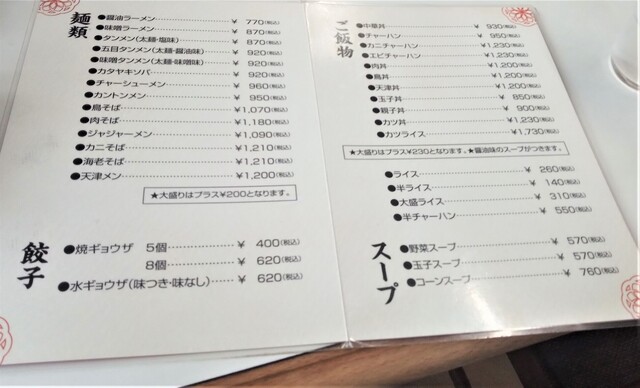 麺類
●醤油ラーメン………¥ 770(税込)
●味噌ラーメン………¥ 870(税込)
●タンメン(太麺・塩味)………¥ 870(税込)
●五目タンメン(太麺・醤油味)………¥ 920(税込)
●味噌タンメン(太麺・味噌味)………¥ 920(税込)
●カタヤキソバ………¥ 920(税込)
●チャーシューメン………¥ 960(税込)
●カントンメン………¥ 950(税込)
●鳥そば………¥1,070(税込)
●肉そば………¥1,180(税込)
●ジャジャーメン………¥1,090(税込)
●カニそば………¥1,210(税込)
●海老そば………¥1,210(税込)
●天津メン………¥1,200(税込)
★大盛りはプラス¥200となります。
餃子
●焼ギョウザ 5個………¥ 400(税込)
8個………¥ 620(税込)
●水ギョウザ(味つき・味なし)………¥ 620(税込)
ご飯物
●中華丼………¥ 930(税込)
●チャーハン………¥ 950(税込)
●カニチャーハン………¥1,230(税込)
●エビチャーハン………¥1,230(税込)
●肉丼………¥1,200(税込)
●鳥丼………¥1,200(税込)
●天津丼………¥1,200(税込)
●玉子丼………¥ 850(税込)
●親子丼………¥ 900(税込)
●カツ丼………¥1,230(税込)
●カツライス………¥1,730(税込)
★大盛りはプラス¥230となります。★醤油味のスープがつきます。
●ライス………¥ 260(税込)
●半ライス………¥ 140(税込)
●大盛ライス………¥ 310(税込)
●半チャーハン………¥ 550(税込)
スープ
●野菜スープ………¥ 570(税込)
●玉子スープ………¥ 570(税込)
●コーンスープ………¥ 760(税込)